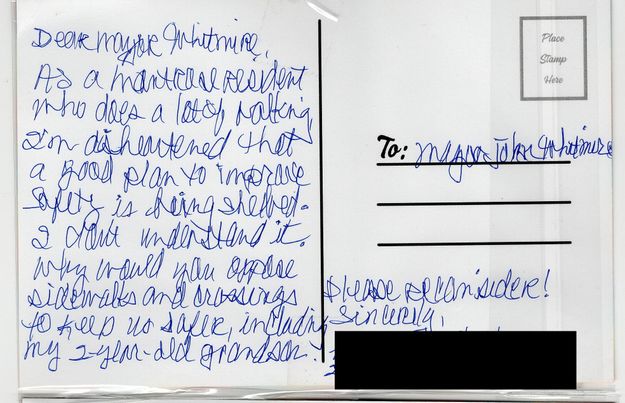 Dear Mayor Whitmire,
As a Montrose resident
who does a lot of walking
I'm disheartened that
a good plan to improve
safety is being shelved.
I don't understand it.
Why would you oppose
sidewalks and crossings
to keep us safer, including
my 2-year-old grandson.
Place
Stamp
Here
To: Mayor John Whitmire
Please reconsider!
Sincerely,